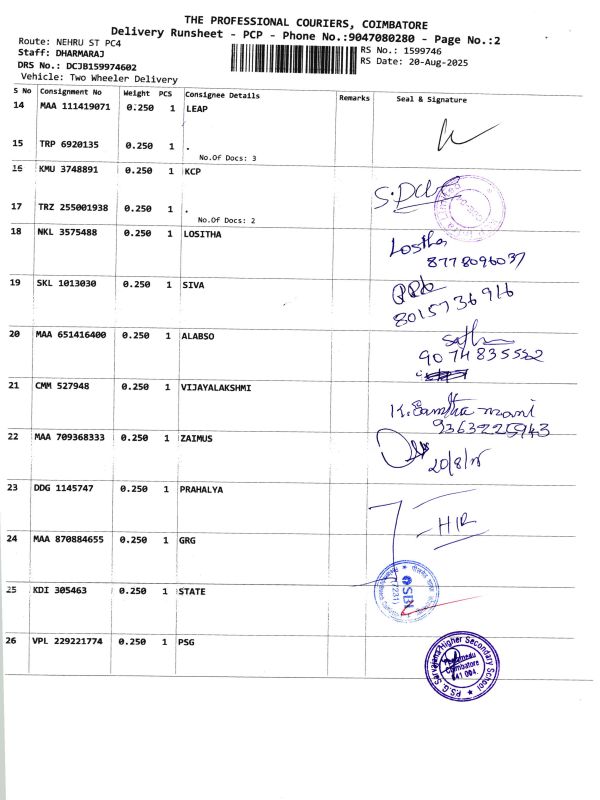 THE PROFESSIONAL COURIERS, COIMBATORE
Delivery Runsheet - PCP - Phone No.:9047080280 - Page No.:2
Route: NEHRU ST PC4
Staff: DHARMARAJ
DRS No.: DCJB159974602
Vehicle: Two Wheeler Delivery
RS No.: 1599746
RS Date: 20-Aug-2025
S No Consignment No Weight PCS Consignee Details Remarks Seal & Signature
14 MAA 111419071 0.250 1 LEAP
15 TRP 6920135 0.250 1 .
No.Of Docs: 3
16 KMU 3748891 0.250 1 KCP
17 TRZ 255001938 0.250 1 .
No.Of Docs: 2
18 NKL 3575488 0.250 1 LOSITHA
Lostha
8778096037
19 SKL 1013030 0.250 1 SIVA
8015736916
20 MAA 651416400 0.250 1 ALABSO
9074835552
21 CMM 527948 0.250 1 VIJAYALAKSHMI
9363225943
22 MAA 709368333 0.250 1 ZAIMUS
20/8/25
23 DDG 1145747 0.250 1 PRAHALYA
24 MAA 870884655 0.250 1 GRG
25 KDI 305463 0.250 1 STATE
SBI
26 VPL 229221774 0.250 1 PSG
P.S.G. Sarvajana Higher Secondary School
Peelamedu
Coimbatore
641 004.